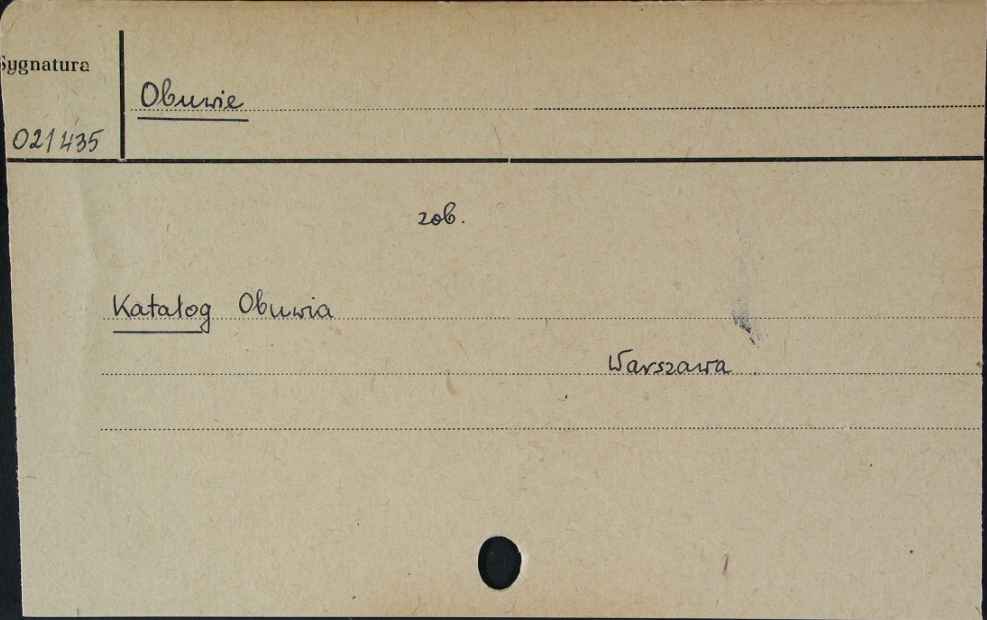 Sygnatura
Obuwie
021435
zob.
Katalog Obuwia
Warszawa